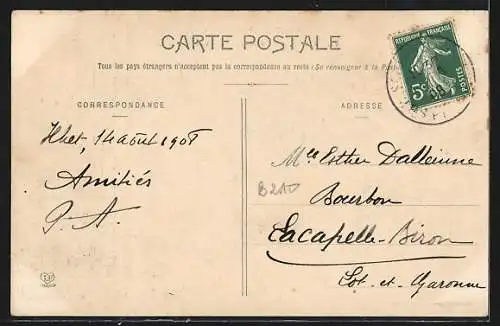 CARTE POSTALE
Tous les pays étrangers n'acceptent pas la correspondance au recto (Se renseigner à la Poste)
CORRESPONDANCE
ADRESSE
REPUBLIQUE FRANÇAISE
5c
POSTES
14 août 1908
Amitiés
J. A.
Mlle Esther
Bourbon
Lacapelle-Biron
Lot-et-Garonne
B210